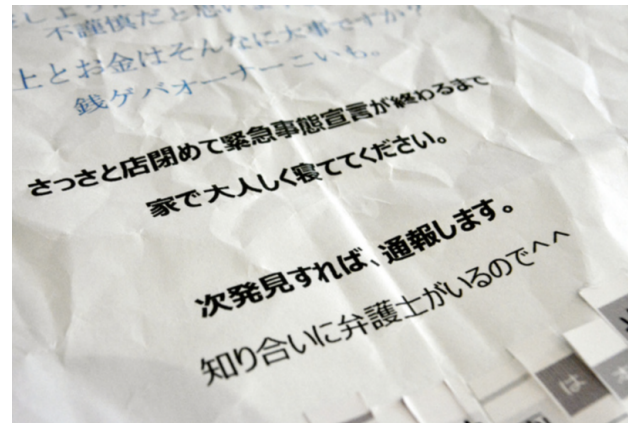 不謹慎だと思いま
上とお金はそんなに大事ですか?
銭ゲバオーナーこいち。
さっさと店閉めて緊急事態宣言が終わるまで
家で大人しく寝ててください。
次発見すれば、通報します。
知り合いに弁護士がいるのでへへ
は